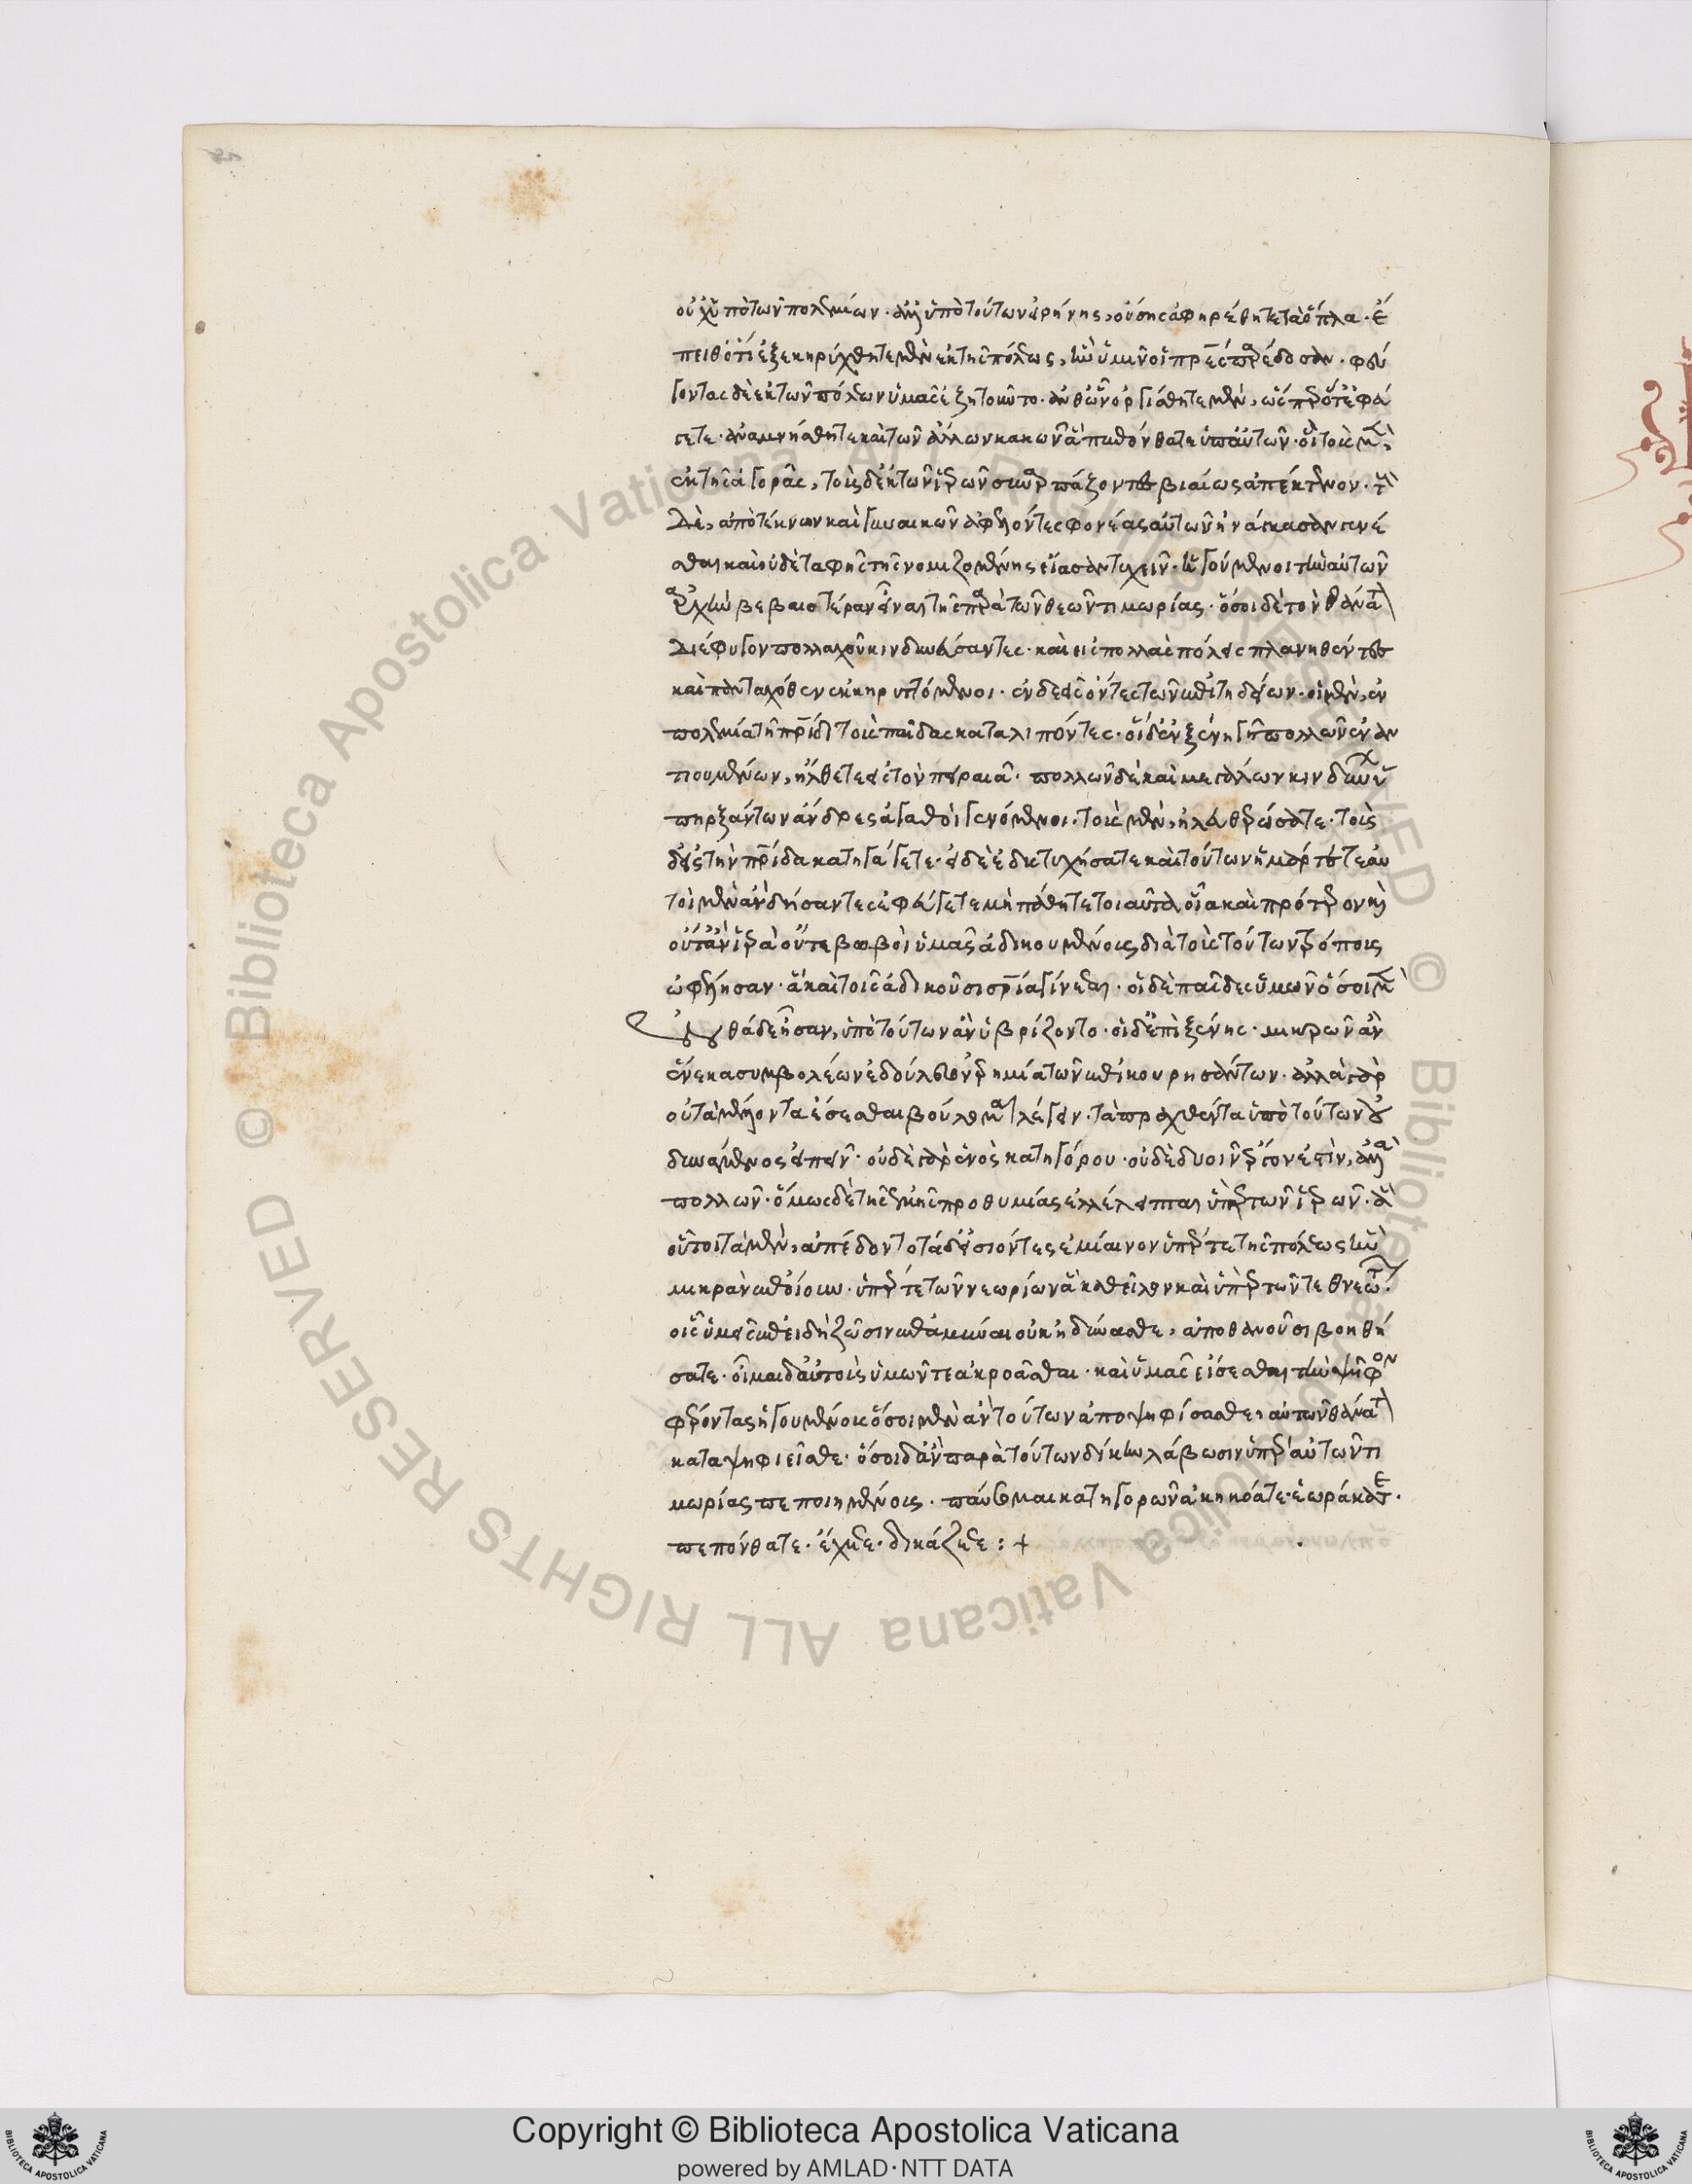 οὐχ ὑπὸ τῶν πολεμίων· ἀλλ' ὑπὸ τούτων εἰρήνης οὔσης ἀφηρέθητε τὰ ὅπλα· ἔ
πειθ' ὅτι ἐξεκηρύχθητε μὲν ἐκ τῆς πόλεως, ἣν ὑμῖν οἱ πρ̅ες παρέδοσαν· φεύ
γοντας δὲ ἐκ τῶν πόλεων ὑμᾶς ἐξῃτοῦντο· ἀνθ' ὧν ὀργίσθητε μὲν, ὥσπερ ὅτ' ἐφεύ
γετε· ἀναμνήσθητε καὶ τῶν ἄλλων κακῶν ἃ πεπόνθατε ὑπ' αὐτῶν· οἳ τοὺς μὲν,
ἐκ τῆς ἀγορᾶς, τοὺς δ' ἐκ τῶν ἱερῶν συναρπάζοντες βιαίως ἀπέκτεινον· τοὺς
δὲ, ἀπὸ τέκνων καὶ γυναικῶν ἀφέλκοντες φονέας αὐτῶν ἠνάγκασαν γενέ
σθαι καὶ οὐδὲ ταφῆς τῆς νομιζομένης εἴασαν τυχεῖν· ἡγούμενοι τὴν αὐτῶν
ἀρχὴν βεβαιοτέραν εἶναι τῆς παρὰ τῶν θεῶν τιμωρίας· ὅσοι δὲ τὸν θάνατ
διέφυγον πολλαχοῦ κινδυνεύσαντες· καὶ εἰς πολλὰς πόλεις πλανηθέντες
καὶ πανταχόθεν ἐκκηρυττόμενοι· ἐνδεεῖς ὄντες τῶν ἐπιτηδείων· οἱ μὲν, ἐν
πολεμίᾳ τῇ πρ̅ίδι τοὺς παῖδας καταλιπόντες· οἱ δ' ἐν ξένῃ γῇ πολλῶν ἐναν
τιουμένων, ἤλθετε εἰς τὸν πειραιᾶ· πολλῶν δὲ καὶ μεγάλων κινδύνων ὑ
πηρξάντων ἄνδρες ἀγαθοὶ γενόμενοι· τοὺς μὲν, ἠλευθερώσατε· τοὺς
δ' εἰς τὴν πρ̅ίδα κατηγάγετε· εἰ δὲ ἐδυστυχήσατε καὶ τούτων ἡμάρτετε αὐ
τοὶ μὲν ἂν δείσαντες ἐφεύγετε μὴ πάθητε τοιαῦτα οἷα καὶ πρότερον καὶ
οὔτ' ἂν ἱερὰ οὔτε βωμοὶ ὑμᾶς ἀδικουμένους διὰ τοὺς τούτων τρόπους
ὠφέλησαν· ἃ καὶ τοῖς ἀδικοῦσι σρ̅ία γίνεται· οἱ δὲ παῖδες ὑμῶν ὅσοι μὲν
ἐνθάδε ἦσαν, ὑπὸ τούτων ἂν ὑβρίζοντο· οἱ δ' ἐπὶ ξένης· μικρῶν ἂν
ἕνεκα συμβολέων ἐδούλευον ἐρημίᾳ τῶν ἐπικουρησάντων· ἀλλὰ γὰρ
οὐ τὰ μέλλοντα ἔσεσθαι βούλομαι λέγειν· τὰ πραχθέντα ὑπὸ τούτων οὐ
δυνάμενος εἰπεῖν· οὐδὲ γὰρ ἑνὸς κατηγόρου· οὐδὲ δυοῖν ἔργον ἐστὶν, ἀλλὰ
πολλῶν· ὅμως δὲ τῆς ἐμῆς προθυμίας ἐλλέλειπται ὑπὲρ τῶν ἱερῶν· ἃ
οὗτοι τὰ μὲν, ἀπέδοντο τὰ δ' εἰσιόντες ἐμίαινον ὑπέρ τε τῆς πόλεως ἣν
μικρὰν ἐποίουν· ὑπέρ τε τῶν νεωρίων ἃ καθεῖλον καὶ ὑπὲρ τῶν τεθνεώτ
οἷς ὑμεῖς ἐπειδὴ ζῶσιν ἐπαμῦναι οὐκ ἠδύνασθε, ἀποθανοῦσι βοηθή
σατε· οἶμαι δ' αὐτοὺς ὑμῶν τε ἀκροᾶσθαι· καὶ ὑμᾶς εἴσεσθαι τὴν ψῆφον
φέροντας ἡγουμένους ὅσοι μὲν ἂν τούτων ἀποψηφίσησθε, αὐτῶν θάνατ
καταψηφιεῖσθε· ὅσοι δ' ἂν παρὰ τούτων δίκην λάβωσιν ὑπὲρ αὐτῶν τι
μωρίας πεποιημένους· παύσομαι κατηγορῶν ἀκηκόατε· ἑωράκατε·
πεπόνθατε· ἔχετε· δικάζετε: +
© Biblioteca Apostolica Vaticana ALL RIGHTS RESERVED © Biblioteca Apostolica Vaticana ALL RIGHTS RESERVED
Copyright © Biblioteca Apostolica Vaticana
powered by AMLAD·NTT DATA